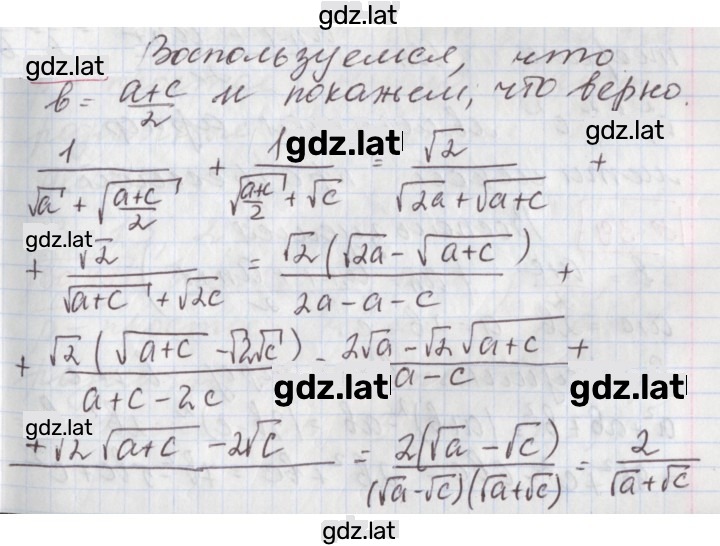 gdz.lat
Воспользуемся, что
gdz.lat
в = (a+c)/2 и покажем, что верно.
gdz.lat
gdz.lat
1/(√a + √((a+c)/2)) + 1/(√((a+c)/2) + √c) = √2/(√2a + √(a+c)) +
gdz.lat
+ √2/(√(a+c) + √2c) = √2(√2a - √(a+c))/(2a - a - c) +
+ √2(√(a+c) - √2√c)/(a+c-2c) = (2√a - √2√(a+c))/(a-c) +
gdz.lat
gdz.lat
gdz.lat
+√2√(a+c) - 2√c = 2(√a - √c)/((√a-√c)(√a+√c)) = 2/(√a+√c)
gdz.lat